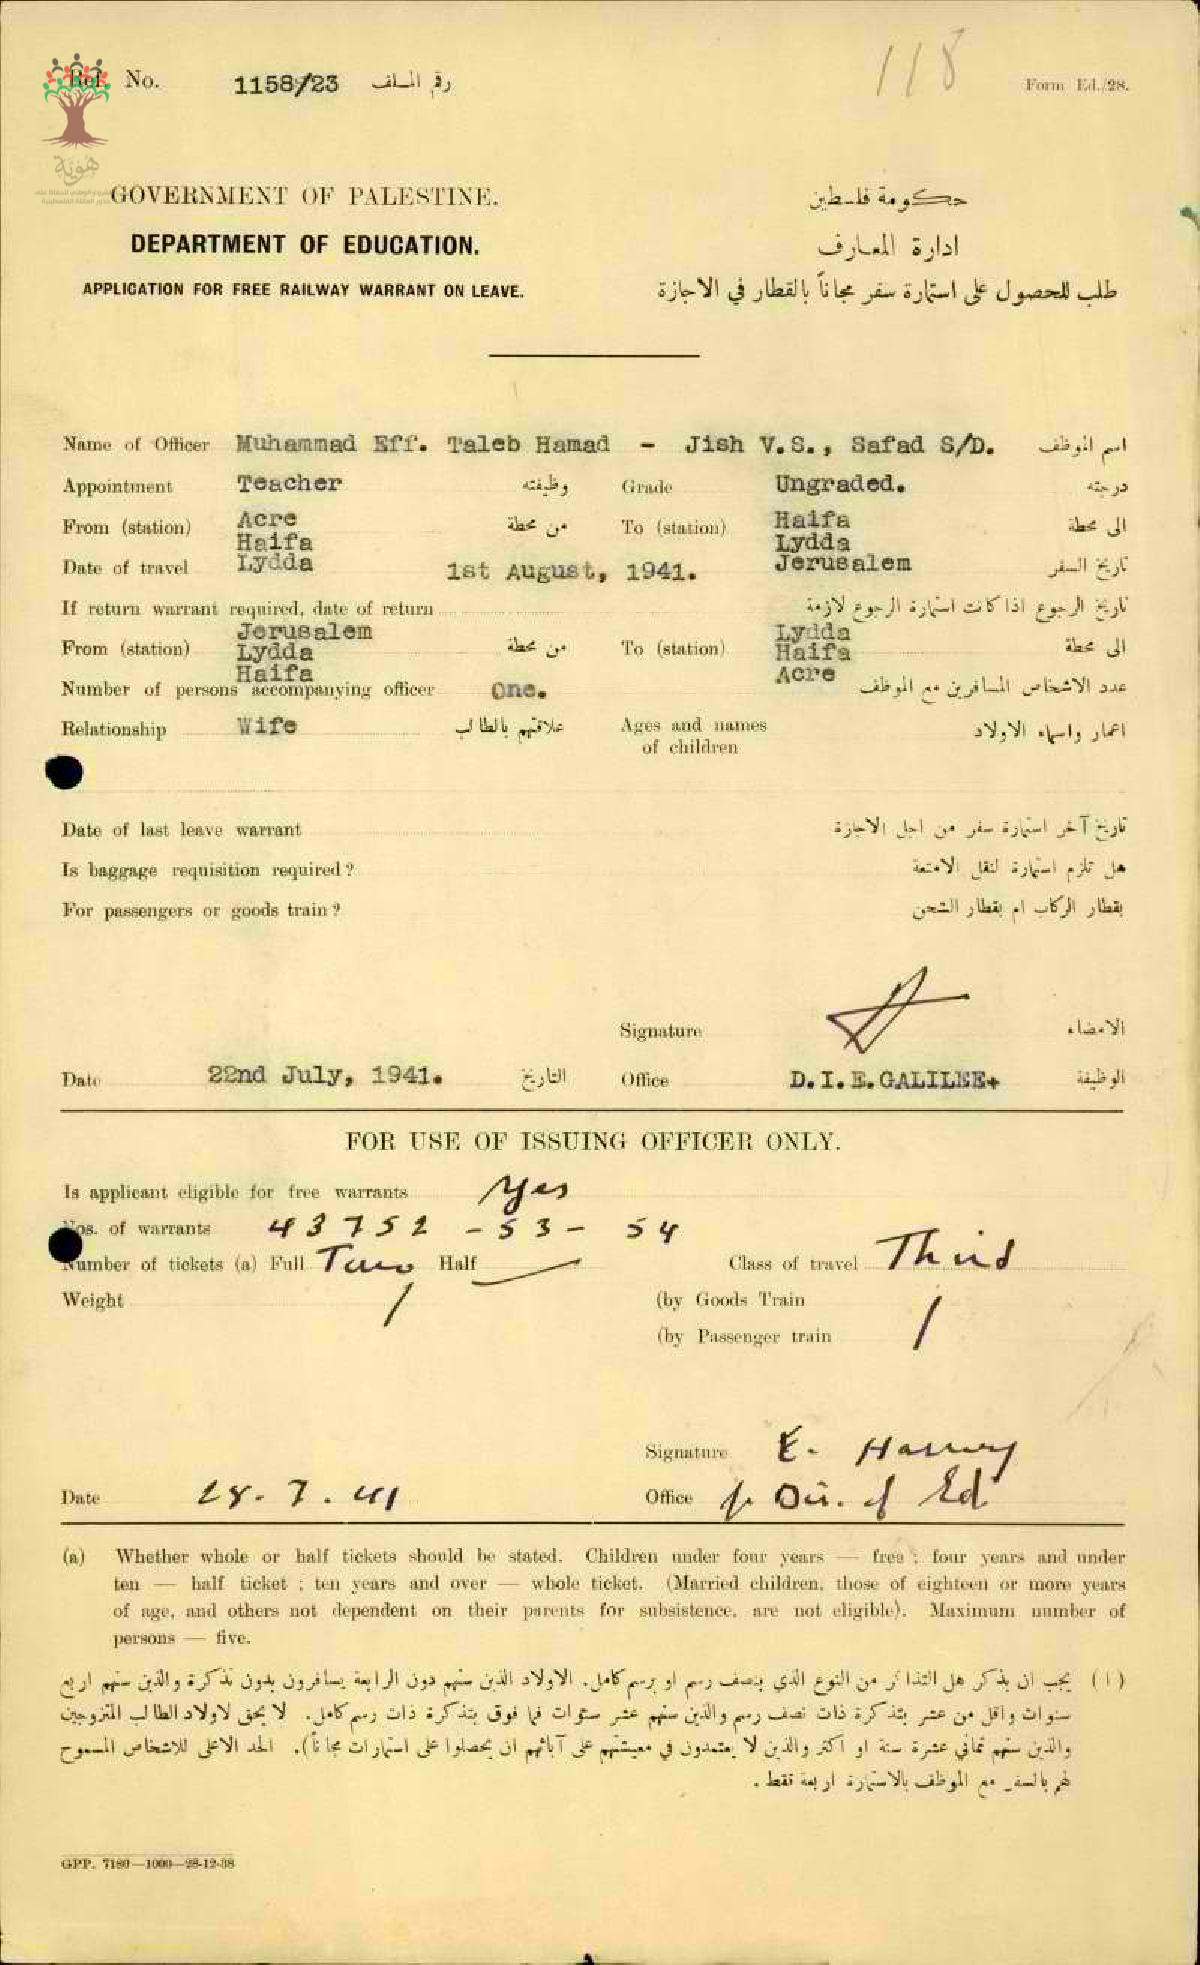 118
Ref. No. 1158/23 رقم الملف
Form Ed./28.
هُوِيَّة
GOVERNMENT OF PALESTINE. حكومة فلسطين
DEPARTMENT OF EDUCATION. ادارة المعارف
APPLICATION FOR FREE RAILWAY WARRANT ON LEAVE. طلب للحصول على استمارة سفر مجاناً بالقطار في الاجازة
Name of Officer Muhammad Eff. Taleb Hamad - Jish V.S., Safad S/D. اسم الموظف
Appointment Teacher وظيفته Grade Ungraded. درجته
From (station) Acre من محطة To (station) Haifa الى محطة
Haifa Lydda
Date of travel Lydda 1st August, 1941. Jerusalem تاريخ السفر
If return warrant required, date of return تاريخ الرجوع اذا كانت استمارة الرجوع لازمة
Jerusalem Lydda
From (station) Lydda من محطة To (station) Haifa الى محطة
Haifa Acre
Number of persons accompanying officer One. عدد الاشخاص المسافرين مع الموظف
Relationship Wife علاقتهم بالطالب Ages and names of children اعمار واسماء الاولاد
Date of last leave warrant تاريخ آخر استمارة سفر من اجل الاجازة
Is baggage requisition required? هل تلزم استمارة لنقل الامتعة
For passengers or goods train? بقطار الركاب ام بقطار الشحن
Signature الامضاء
Date 22nd July, 1941. التاريخ Office D.I.E.GALILEE+ الوظيفة
FOR USE OF ISSUING OFFICER ONLY.
Is applicant eligible for free warrants Yes
Nos. of warrants 43752 - 53 - 54
Number of tickets (a) Full Two Half Class of travel Third
Weight (by Goods Train
(by Passenger train
Signature E. Harvey
Date 28.7.41 Office p. Dir. of Ed
(a) Whether whole or half tickets should be stated. Children under four years — free; four years and under
ten — half ticket; ten years and over — whole ticket. (Married children, those of eighteen or more years
of age, and others not dependent on their parents for subsistence, are not eligible). Maximum number of
persons — five.
(ا) يجب ان يذكر هل التذاكر من النوع الذي بنصف رسم او برسم كامل. الاولاد الذين سنهم دون الرابعة يسافرون بدون تذكرة والذين سنهم اربع
سنوات واقل من عشر بتذكرة ذات نصف رسم والذين سنهم عشر سنوات فما فوق بتذكرة ذات رسم كامل. لا يحق لاولاد الطالب المتزوجين
والذين سنهم ثماني عشرة سنة او اكثر والذين لا يعتمدون في معيشتهم على آبائهم ان يحصلوا على استمارات مجاناً). الحد الاعلى للاشخاص المسموح
لهم بالسفر مع الموظف بالاستمارة اربعة فقط.
GPP. 7180—1000—28-12-38